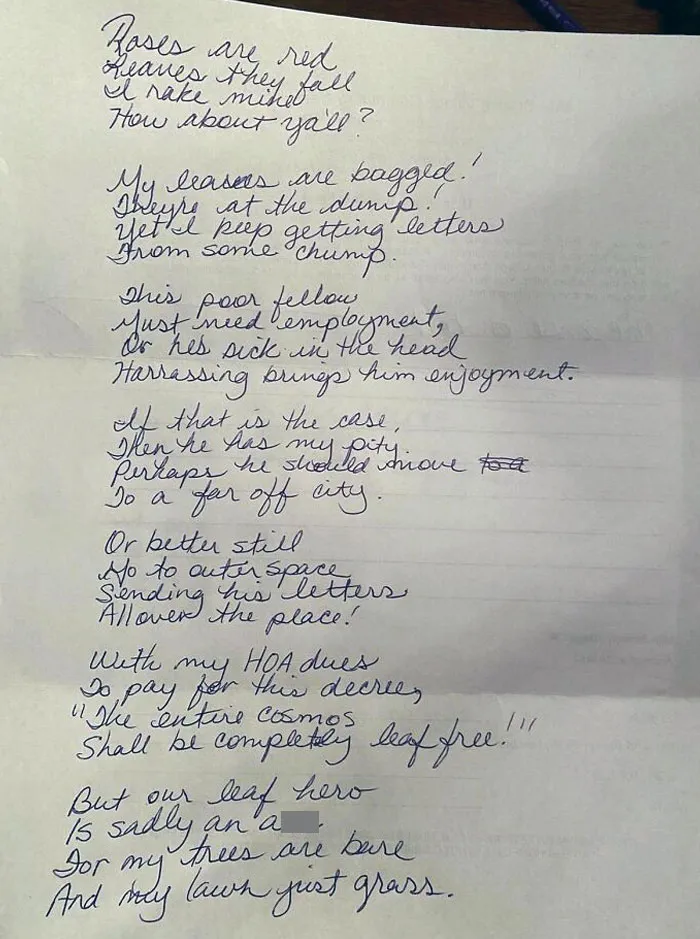 Roses are red
Leaves they fall
I rake mine
How about ya'll?
My leaves are bagged!
They're at the dump!
Yet I keep getting letters
From some chump.
This poor fellow
Must need employment,
Or he's sick in the head
Harrassing brings him enjoyment.
If that is the case,
Then he has my pity.
Perhaps he should move
To a far off city.
Or better still
Go to outer space
Sending his letters
All over the place!
With my HOA dues
To pay for this decree,
"The entire cosmos
Shall be completely leaf free!!"
But our leaf hero
Is sadly an a
For my trees are bare
And my lawn just grass.